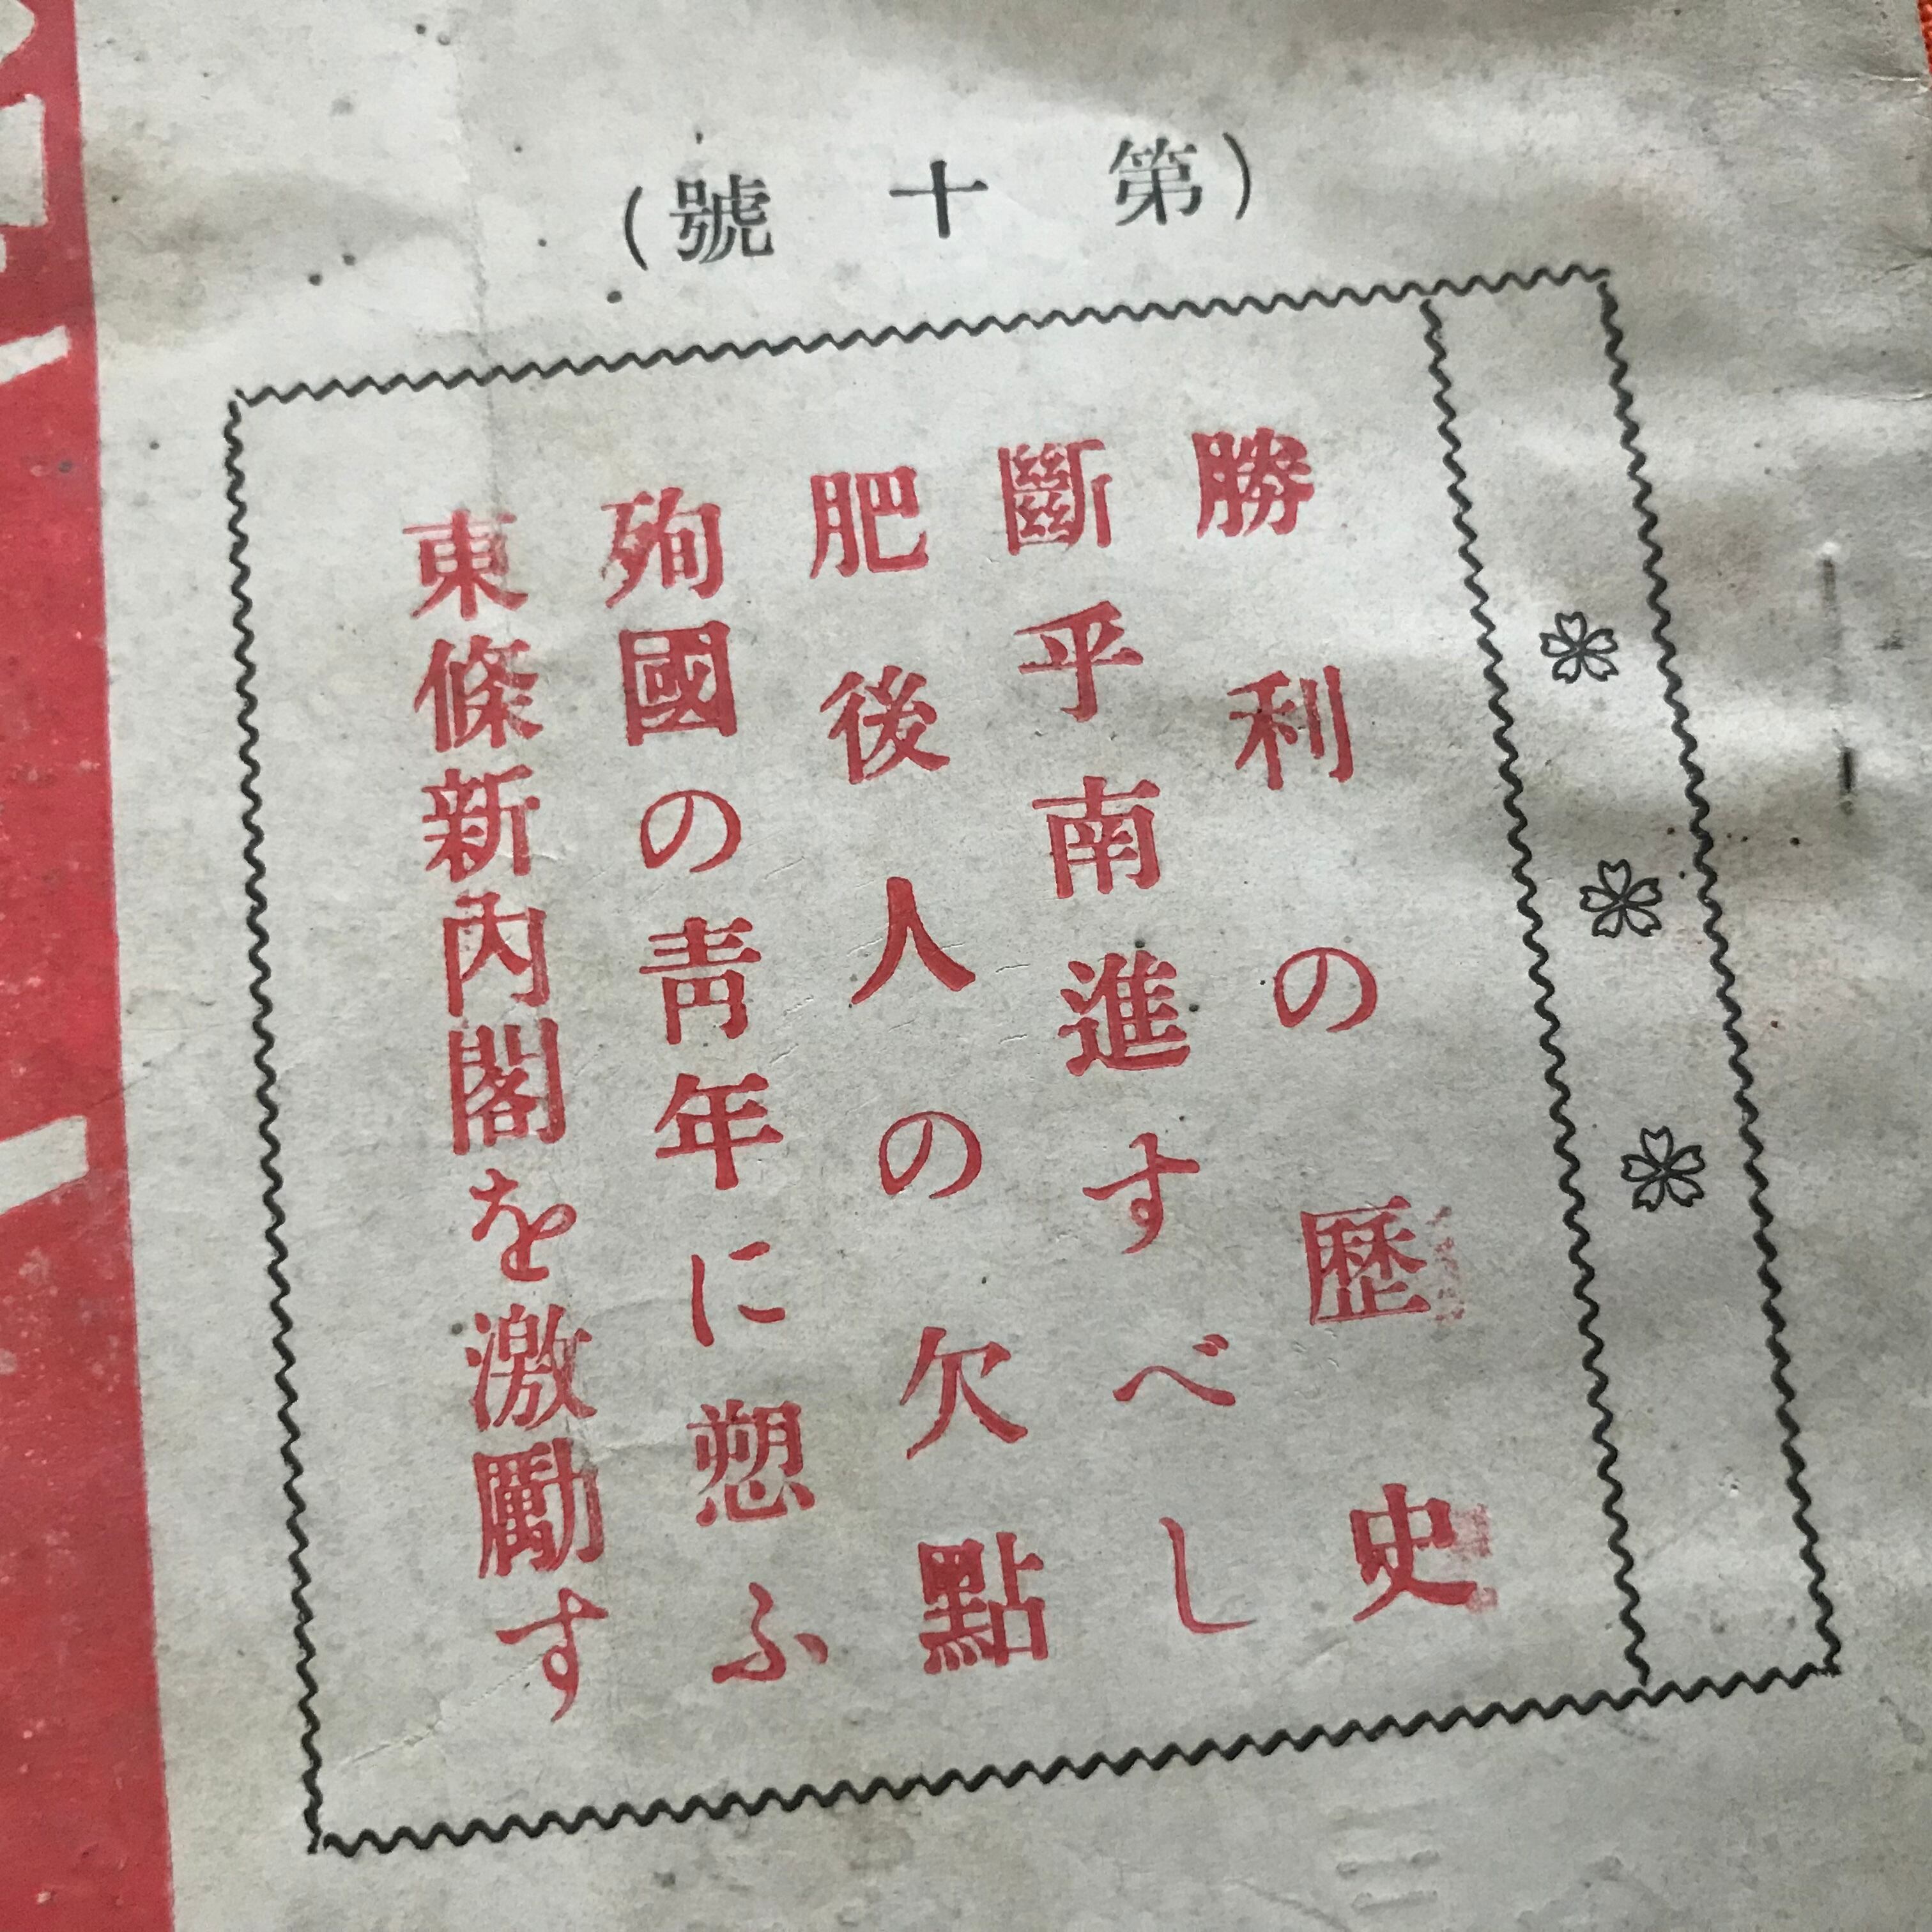 (第十號)
勝利の歷史
斷乎南進すべし
肥後人の欠點
殉國の靑年に愬ふ
東條新內閣を激勵す